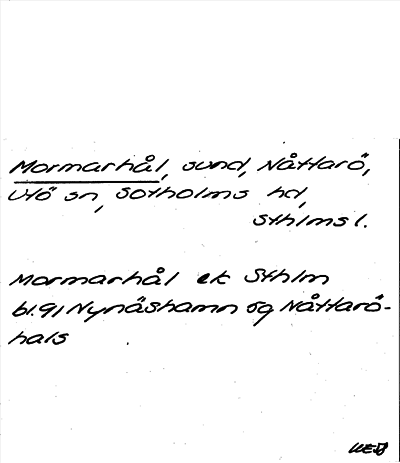 Mormarhål, sund, Nåttarö,
Utö sn, Sotholms hd,
Sthlms l.
Mormarhål ek Sthlm
bl. 91 Nynäshamn og Nåttarö-
hals